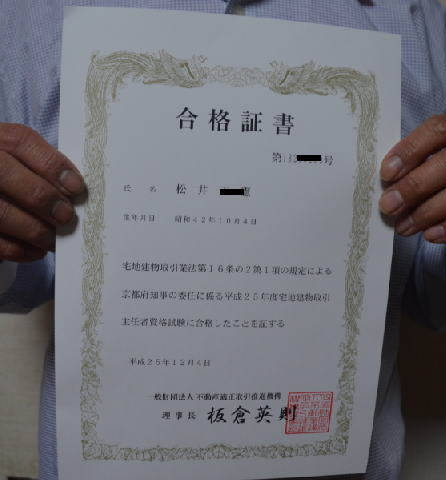 合格証書
第13 号
氏名 松井 憲
生年月日 昭和42年10月4日
宅地建物取引業法第16条の2第1項の規定による
京都府知事の委任に係る平成25年度宅地建物取引
主任者資格試験に合格したことを証する
平成25年12月4日
一般財団法人 不動産適正取引推進機構
理事長 板倉英則